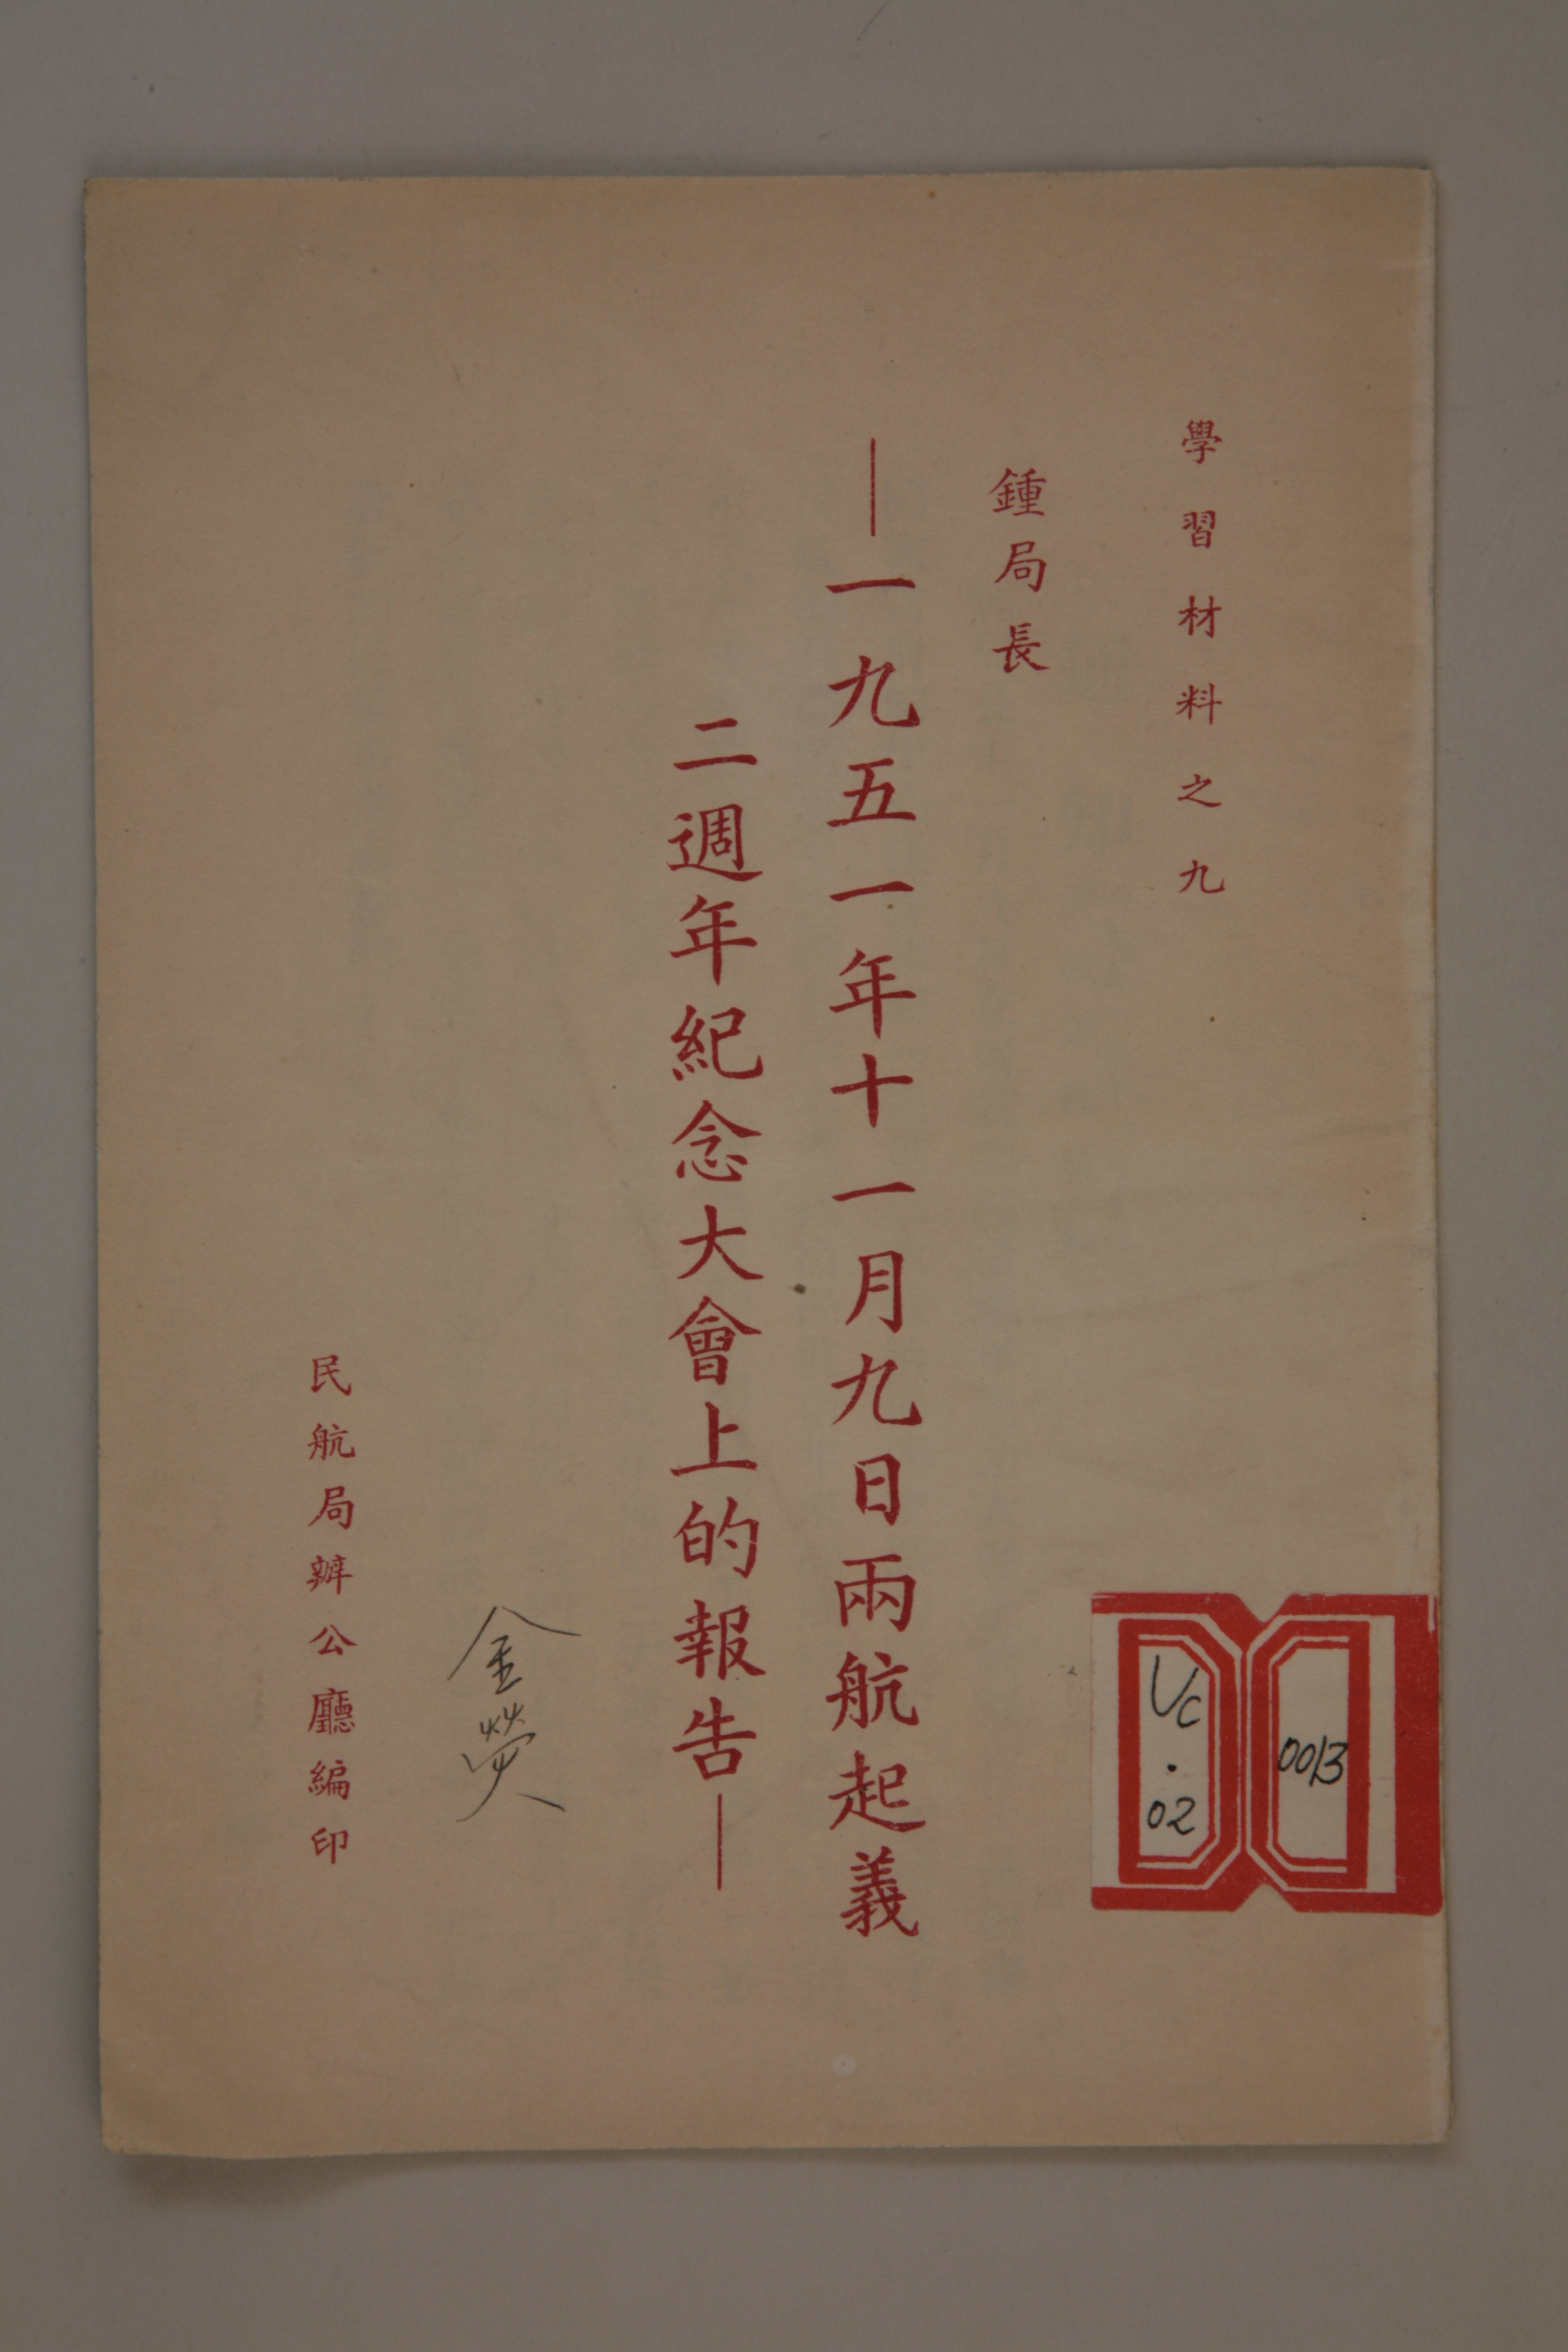 學習材料之九
鍾局長
—一九五一年十一月九日兩航起義
二週年紀念大會上的報告—
金
民航局辦公廳編印
Vc
·
02
0013